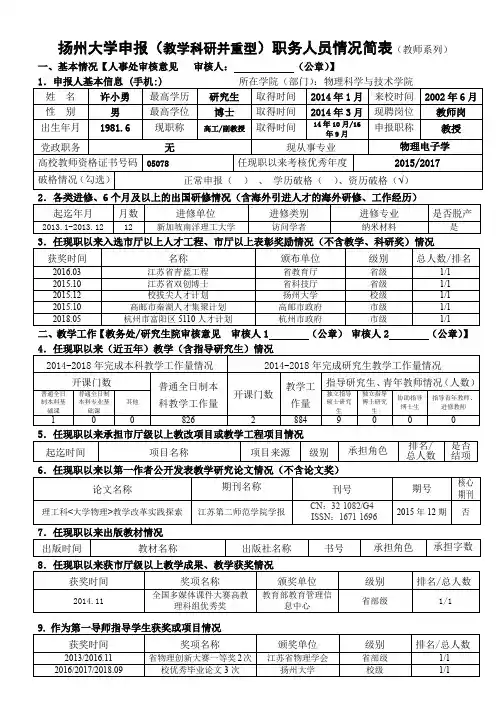 扬州大学申报（教学科研并重型）职务人员情况简表（教师系列）
一、基本情况【人事处审核意见 审核人： （公章）】
1．申报人基本信息 (手机:) 所在学院（部门）：物理科学与技术学院
姓 名 许小勇 最高学历 研究生 取得时间 2014 年 1 月 来校时间 2002 年 6 月
性 别 男 最高学位 博士 取得时间 2014 年 3 月 现聘岗位 教师岗
出生年月 1981.6 现职称 高工/副教授 取得时间 14 年 10 月/16 年 9 月 申报职称 教授
党政职务 无 现从事专业 物理电子学
高校教师资格证书号码 05078 任现职以来考核优秀年度 2015/2017
破格情况（勾选） 正常申报（ ） 、 学历破格（ ）、资历破格（√）
2．各类进修、6 个月及以上的出国研修情况（含海外引进人才的海外研修、工作经历）
起迄年月 月数 进修单位 进修类别 进修专业 是否脱产
2013.1-2013.12 12 新加坡南洋理工大学 访问学者 纳米材料 是
3．任现职以来入选市厅以上人才工程、市厅以上表彰奖励情况（不含教学、科研奖）情况
获奖时间 名称 颁布单位 级别 总人数/排名
2016.03 江苏省青蓝工程 省教育厅 省级 1/1
2015.10 江苏省双创博士 省科技厅 省级 1/1
2015.12 校拔尖人才计划 扬州大学 校级 1/1
2015.10 高邮市秦湖人才集聚计划 高邮市政府 市级 1/1
2018.05 杭州市富阳区 5110 人才计划 杭州市政府 市级 1/1
二、教学工作【教务处/研究生院审核意见 审核人 1 （公章） 审核人 2 （公章）】
4．任现职以来（近五年）教学（含指导研究生）情况
2014-2018 年完成本科教学工作量情况 2014-2018 年完成研究生教学工作量情况
开课门数 普通全日制本科教学工作量 开课门数 教学工作量 指导研究生、青年教师情况（人数）
普通全日制本科基础课 普通全日制本科专业基础课 其他 独立指导硕士研究生 独立指导博士研究生 协助指导博士生 指导青年教师、进修教师
1 0 0 826 2 884 9 0 0 0
5．任现职以来承担市厅级以上教改项目或教学工程项目情况
起迄时间 项目名称 项目来源 级别 承担角色 排名/总人数 是否结项
6．任现职以来以第一作者公开发表教学研究论文情况（不含论文奖）
论文名称 期刊名称 刊号 期号 核心期刊
理工科<大学物理>教学改革实践探索 江苏第二师范学院学报 CN：32-1082/G4 ISSN：1671-1696 2015 年 12 期 否
7．任现职以来出版教材情况
出版时间 教材名称 出版社名称 书号 承担角色 承担字数
8．任现职以来获市厅级以上教学成果、教学获奖情况
获奖时间 奖项名称 颁奖单位 级别 排名/总人数
2014.11 全国多媒体课件大赛高教理科组优秀奖 教育部教育管理信息中心 省部级 1/1
9. 作为第一导师指导学生获奖或项目情况
获奖时间 奖项名称 颁奖单位 级别 排名/总人数
2013/2016.11 省物理创新大赛一等奖 2 次 江苏省物理学会 省部级 1/1
2016/2017/2018.09 校优秀毕业论文 3 次 扬州大学 校级 1/1